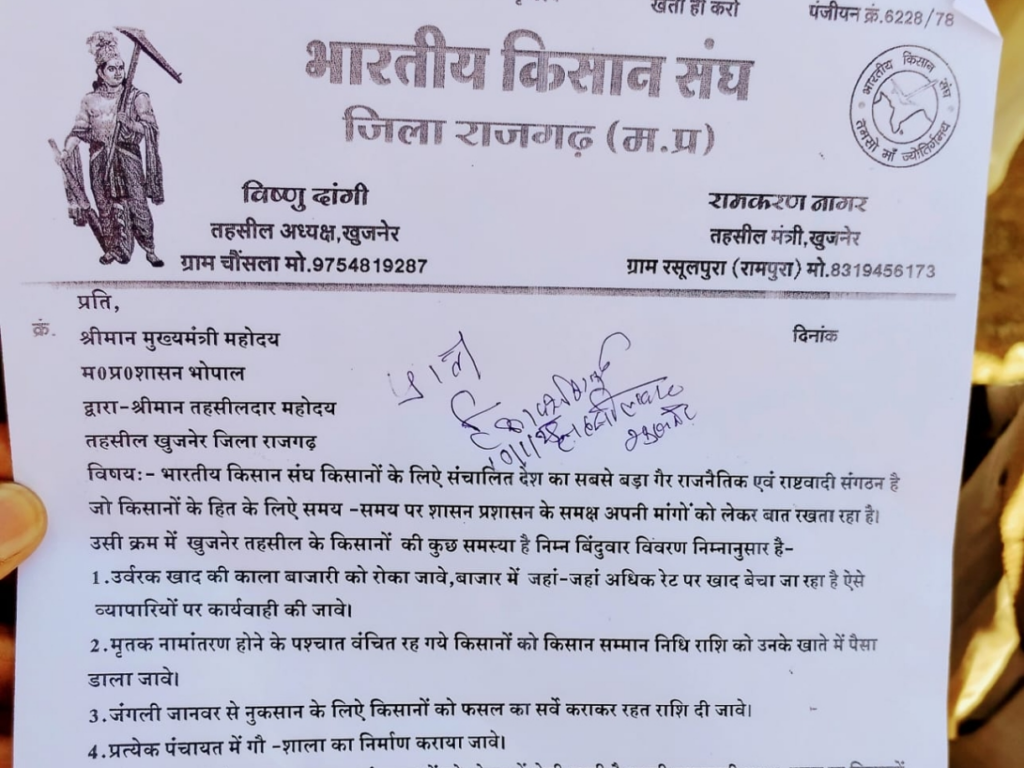 खेती ही करो
पंजीयन क्रं.6228/78
भारतीय किसान संघ
जिला राजगढ़ (म.प्र)
भारतीय किसान संघ
तमसो माँ ज्योतिर्गमय
विष्णु दांगी
तहसील अध्यक्ष,खुजनेर
ग्राम चौंसला मो.9754819287
रामकरण नागर
तहसील मंत्री,खुजनेर
ग्राम रसूलपुरा (रामपुरा) मो.8319456173
प्रति,
क्रं.
दिनांक
श्रीमान मुख्यमंत्री महोदय
म0प्र0शासन भोपाल
द्वारा-श्रीमान तहसीलदार महोदय
तहसील खुजनेर जिला राजगढ़
विषयः- भारतीय किसान संघ किसानों के लिऐ संचालित देश का सबसे बड़ा गैर राजनैतिक एवं राष्टवादी संगठन है
जो किसानों के हित के लिऐ समय -समय पर शासन प्रशासन के समक्ष अपनी मांगों को लेकर बात रखता रहा है।
उसी क्रम में खुजनेर तहसील के किसानों की कुछ समस्या है निम्न बिंदुवार विवरण निम्नानुसार है-
1.उर्वरक खाद की काला बाजारी को रोका जावे,बाजार में जहां-जहां अधिक रेट पर खाद बेचा जा रहा है ऐसे
व्यापारियों पर कार्यवाही की जावे।
2.मृतक नामांतरण होने के पश्चात वंचित रह गये किसानों को किसान सम्मान निधि राशि को उनके खाते में पैसा
डाला जावे।
3.जंगली जानवर से नुकसान के लिऐ किसानों को फसल का सर्वे कराकर रहत राशि दी जावे।
4.प्रत्येक पंचायत में गौ -शाला का निर्माण कराया जावे।